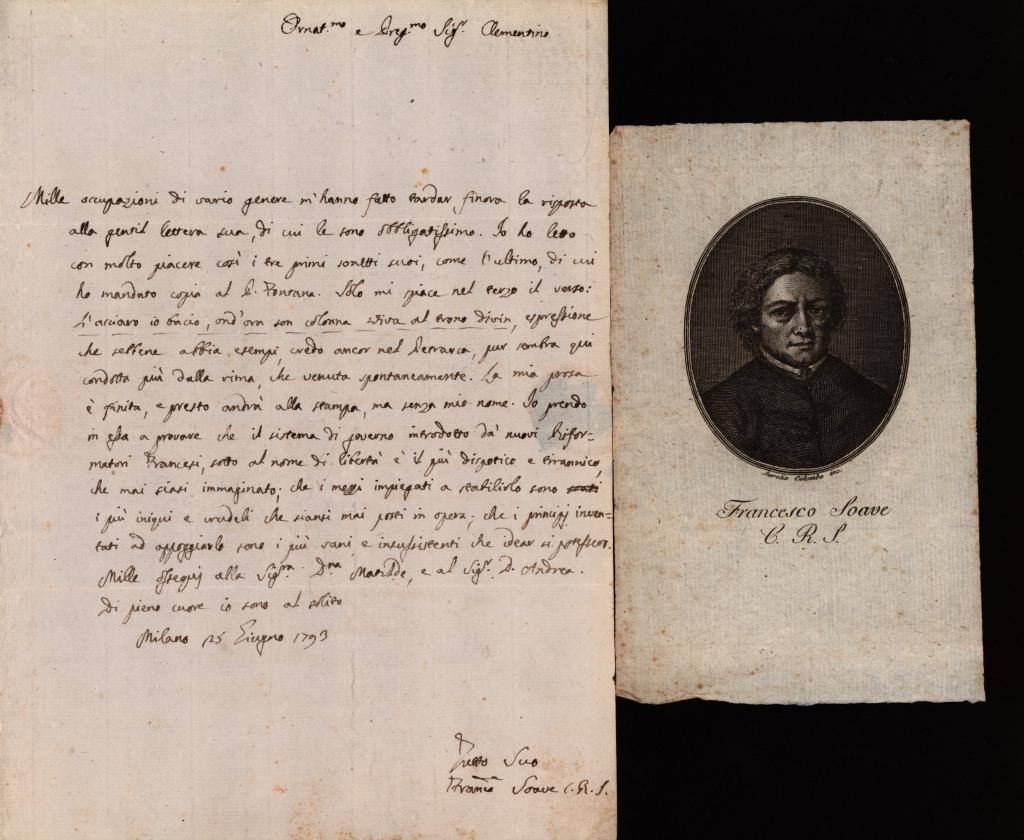 Ornat.mo e Preg.mo Sig.r Clementino
Mille occupazioni di vario genere m'hanno fatto tardar finora la risposta
alla gentil lettera sua, di cui le sono obbligatissimo. Io ho letto
con molto piacere così i tre primi sonetti suoi, come l'ultimo, di cui
ho mandato copia al P. Fontana. Solo mi spiace nel terzo il verso:
L'acciaro io bacio, ond'ora son colonna viva al trono divin, espressione
che sebbene abbia esempj, credo ancor nel Petrarca, pur sembra qui
condotta più dalla rima, che venuta spontaneamente. La mia prosa
è finita, e presto andrà alla stampa, ma senza mio nome. Io prendo
in essa a provare che il sistema di governo introdotto da' nuovi Rifor-
matori Francesi, sotto al nome di libertà è il più dispotico e tirannico,
che mai siasi immaginato; che i mezzi impiegati a stabilirlo sono
i più iniqui e crudeli che siansi mai posti in opera; che i principj inven-
tati ad appoggiarlo sono i più vani e insussistenti che idear si potessero.
Mille ossequj alla Sig.ra D.na Matilde, e al Sig.r D. Andrea.
Di pieno cuore io sono al solito
Milano 25 Giugno 1793
Tutto Suo
Franco Soave C.R.S.
Aurelio Colombo inc.
Francesco Soave
C. R. S.